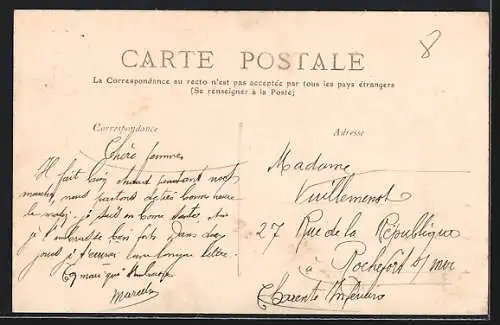 8
CARTE POSTALE
La Correspondance au recto n'est pas acceptée par tous les pays étrangers
(Se renseigner à la Poste)
Correspondance
Adresse
Chère femme
Il fait bien chaud pendant nos
nous partons bonne heure
le matin. je suis en bonne santé,
je t'embrasse bien fort, dans
jours je t'enverrai une longue lettre.
Ton mari qui t'embrasse
Marcel
Madame
Vuillemenot
27 Rue de la République
à Rochefort s/ mer
Charente Inférieure